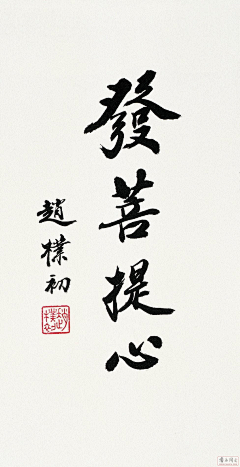 發菩提心
趙樸初